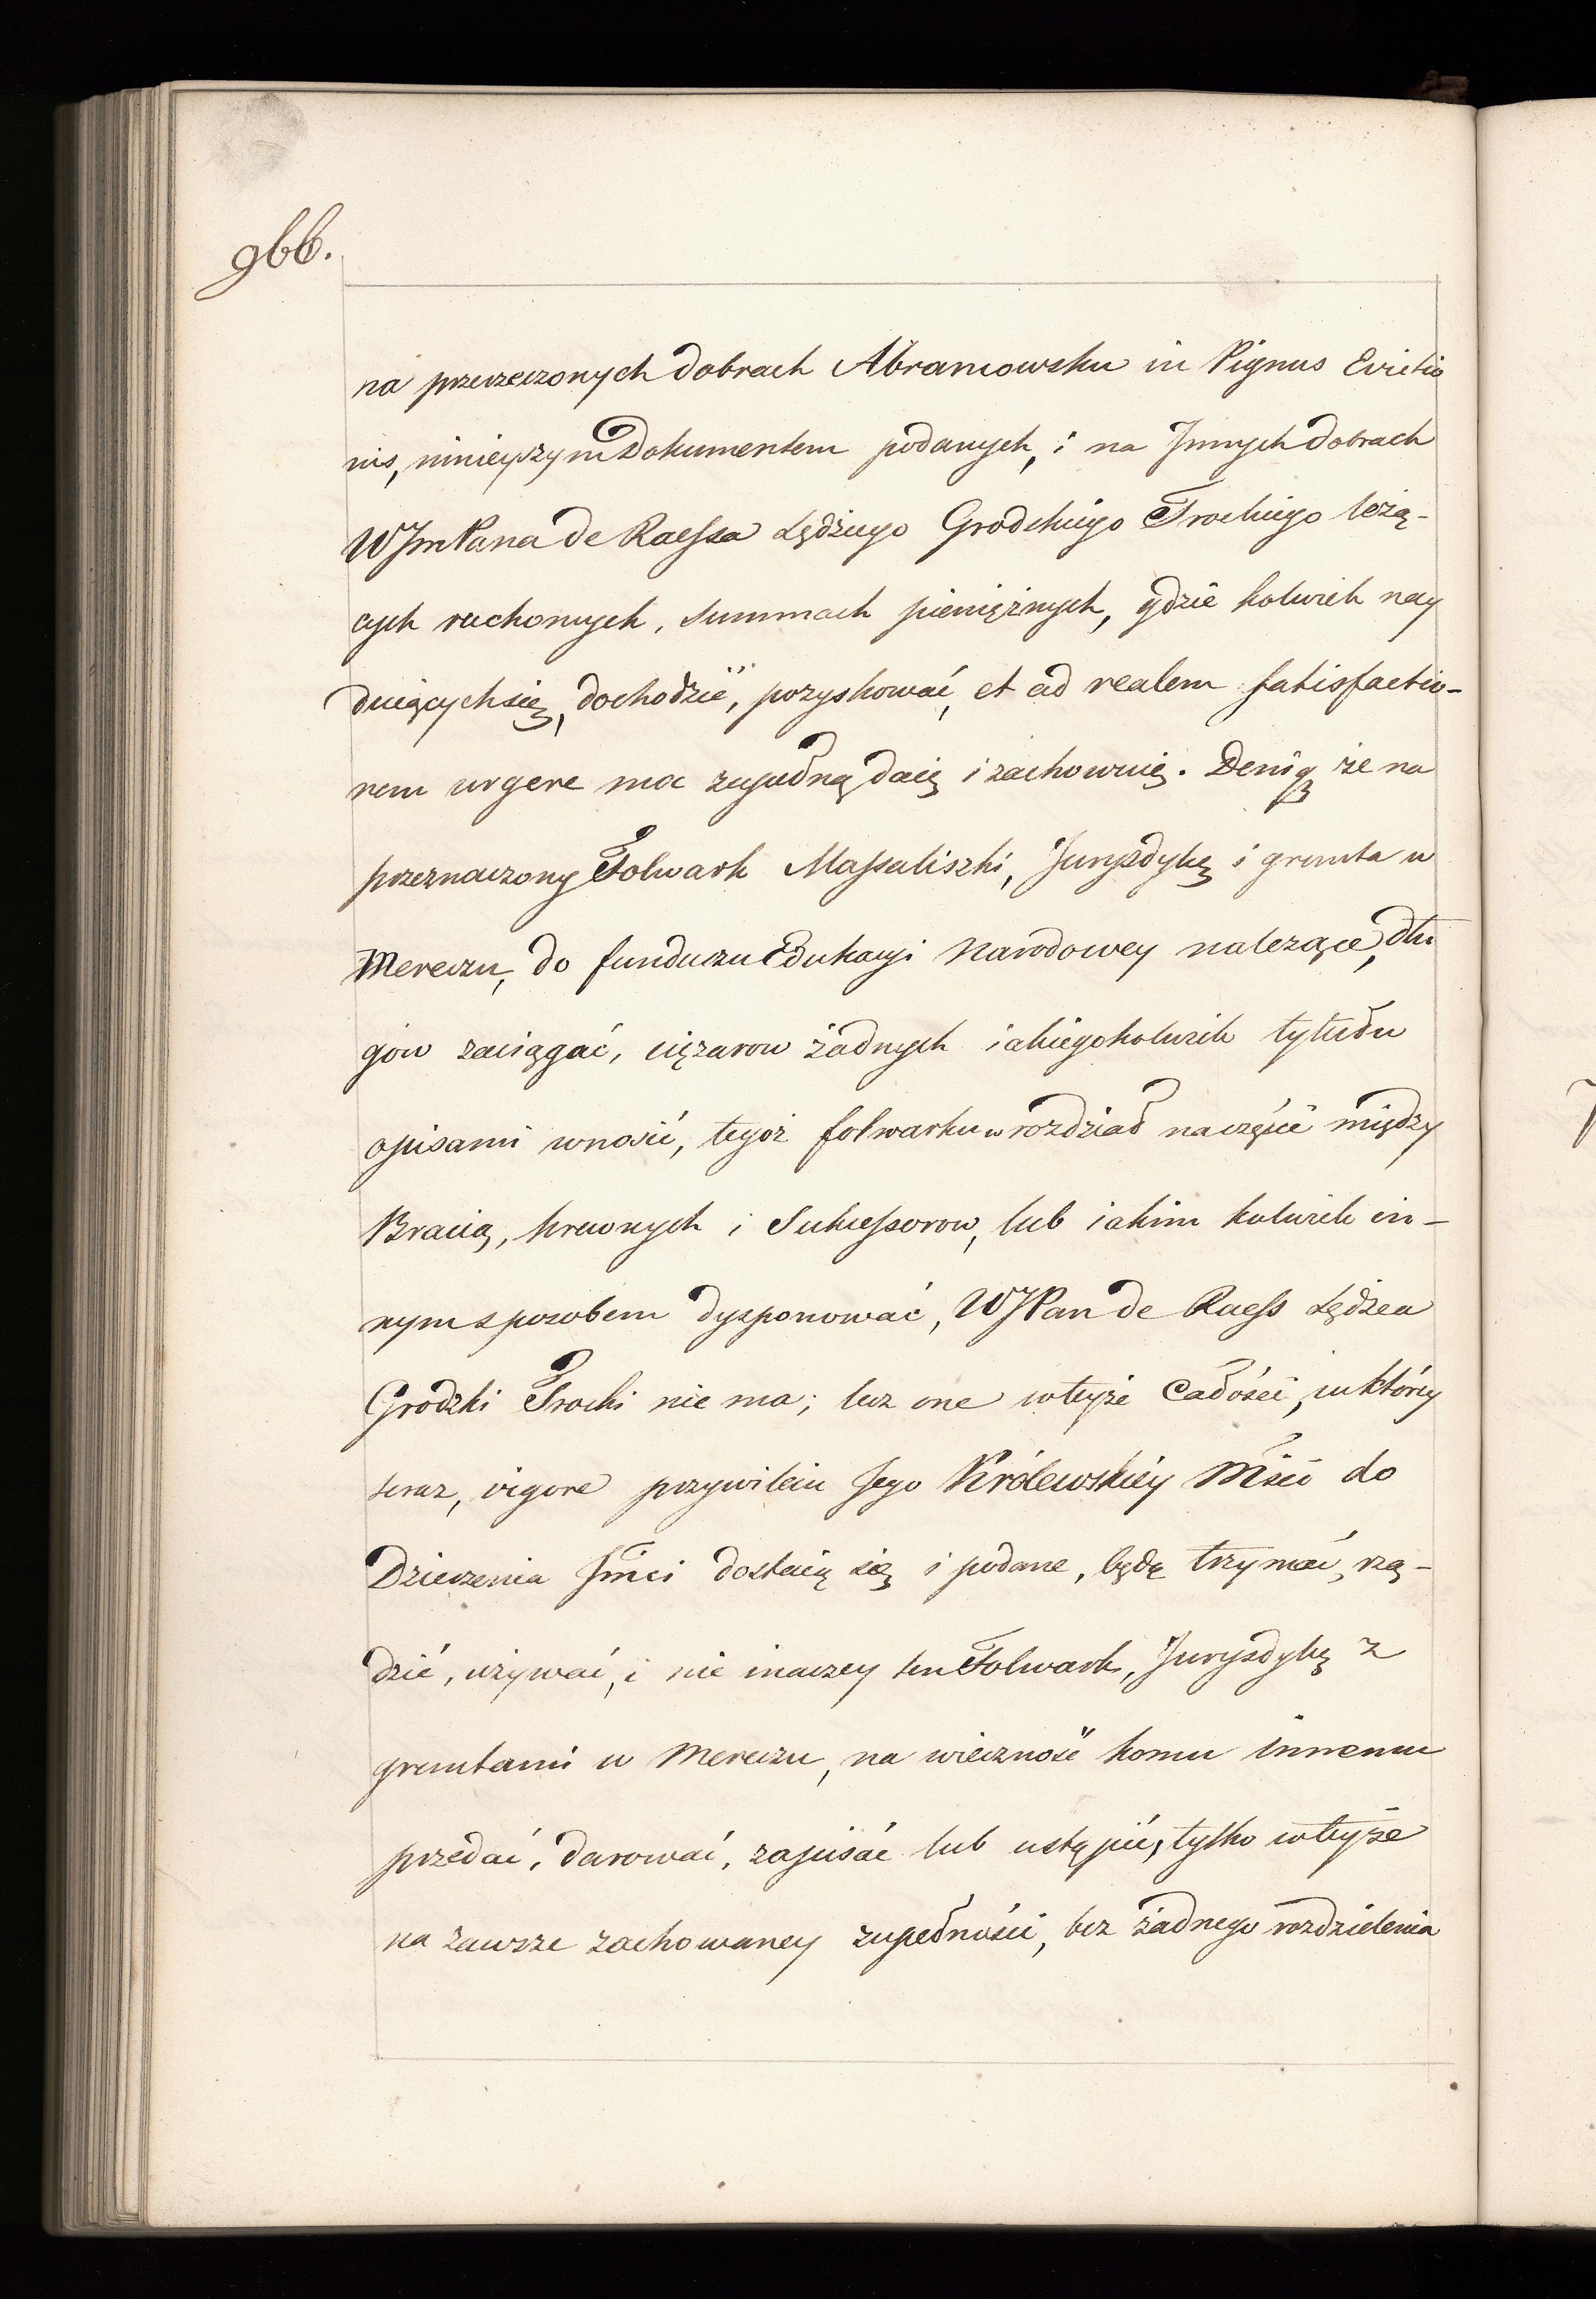 966.
na przerzeczonych dobrach Abramowsku in Pignus Evictio
nis, ninieyszym Dokumentem podanych, i na Jnnych dobrach
WJmPana de Raessa Sędziego Grodzkiego Trockiego leżą-
cych ruchomych, summach pieniężnych, gdzie kolwiek nay
duiących się, dochodzić, pozyskować, et ad realem satisfactio-
nem urgere moc zupełną daię i zachowuię. Denią że na
przeznaczony Folwark Massaliszki, Jurysdykę i grunta w
Mereczu, do funduszu Edukacyi Narodowey należące, dłu
gow zaciągać, ciężarow żadnych iakiegokolwiek tytułu
opisami wnosić, tegoż folwarku w rozdział na części między
Bracią, krewnych i Sukcessorow, lub iakim kolwiek in-
nym sposobem dysponować, WJPan de Raess Sędzia
Grodzki Trocki nie ma; lecz one wteyże Całości, w którey
teraz, vigore przywileiu Jego Królewskiey Mści do
Dzierżenia Jmci dostaią się i podane, będą trzymać, rzą-
dzić, używać, i nie inaczey ten Folwark, Jurysdykę z
gruntami w Mereczu, na wieczność komu innemu
przedać, darować, zapisać lub ustąpić, tylko wteyże
na zawsze zachowaney zupełności, bez żadnego rozdzielenia